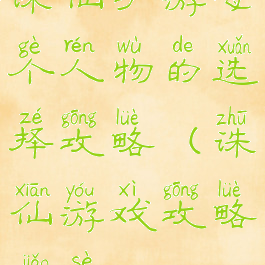 gè rén wù de xuǎn
个人物的选
zé gōng lüè zhū
择攻略（诛
xiān yóu xì gōng lüè
仙游戏攻略